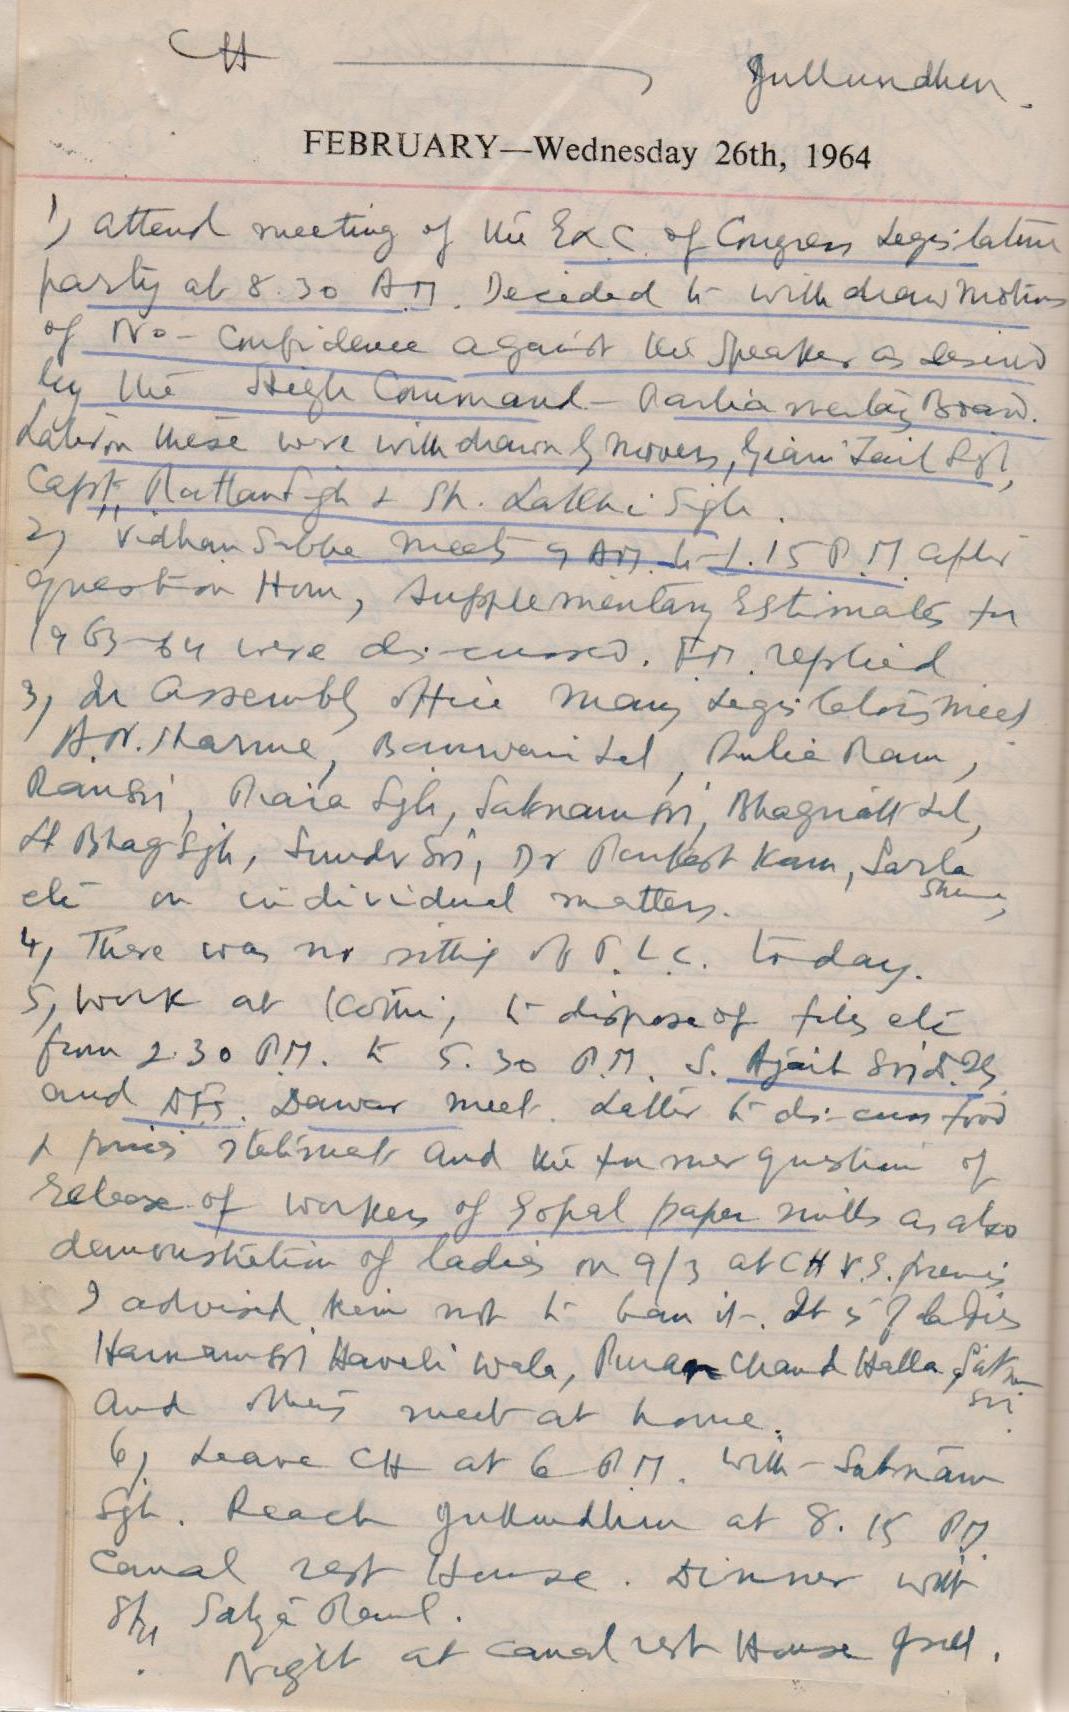 CH Jullundher.
FEBRUARY—Wednesday 26th, 1964
1, attend meeting of the Ex C. of Congress Legislature
party at 8.30 AM. Decided to withdraw motions
of No-Confidence against the Speaker as desired
by the High Command - Parliamentary Board.
Later on these were withdrawn by movers, Giani Zail Sgh,
Capt. Rattan Sigh & Sh. Lakhi Sigh.
2, Vidhan Sabha meets 9 AM. to 1.15 P.M. after
question Hour, Supplementary Estimates for
1963-64 were discussed. FM. replied
3, In Assembly office many Legislators meet
A.N. Sharma, Banwari Lal, Rulia Ram,
Ran Sri, Piara Sgh, Satnam Sri, Bhagirath Lal,
Bhag Sgh, Sunder Sri, Dr Ram, Sarla
Sharma,
etc on individual matters.
4, There was no sitting of P.L.C. today.
5, Work at Kothi, to dispose of files etc
from 2.30 P.M. to 5.30 P.M. S. Ajait Sri
and DFS. Dawar meet. Latter to discuss food
& prices statement and the former question of
release of workers of Gopal paper mills as also
demonstration of ladies on 9/3 at CH V.S. premis
I advised him not to ban it. It is of ladies
Harnam Sri Haveli wala, Puran Chand Halla, Satnam
Sri
and others meet at home.
6, Leave CH at 6 P.M. with - Satnam
Sgh. Reach Jullundhur at 8.15 PM.
Canal rest House. Dinner with
Satya
Night at canal rest House Jull.